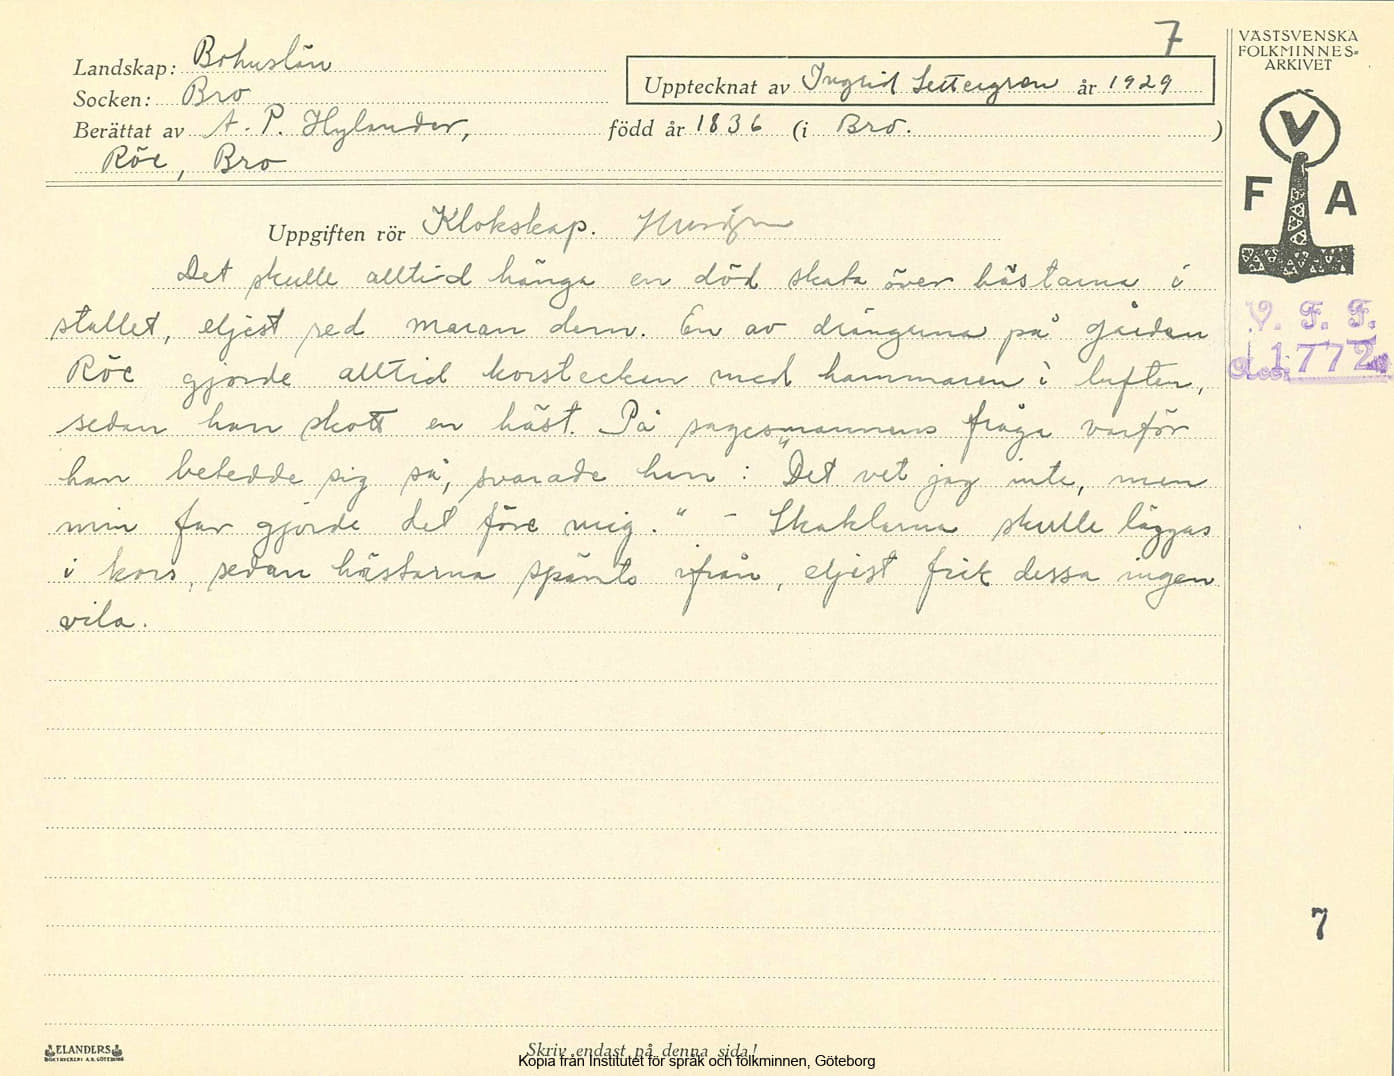 7
VÄSTSVENSKA
FOLKMINNES-
ARKIVET
Landskap: Bohuslän
Socken: Bro
Upptecknat av Ingrid Settergren år 1929
Berättat av A. P. Hylander, född år 1836 (i Bro. )
Röe, Bro
V
F A
Uppgiften rör Klokskap. Husdjur
Det skulle alltid hänga en död skata över hästarna i
stallet, eljest red maran dem. En av drängarna på gården
Röe gjorde alltid korstecken med hammaren i luften,
sedan han skott en häst. På sagesmannens fråga varför
han betedde sig så, svarade han: "Det vet jag inte, men
min far gjorde det före mig." - Skaklarna skulle läggas
i kors, sedan hästarna spänts ifrån, eljest fick dessa ingen
vila.
V. F. F.
Acc. 1772
7
ELANDERS
BOKTRYCKERI A.B. GÖTEBORG
Skriv endast på denna sida!
Kopia från Institutet för språk och folkminnen, Göteborg